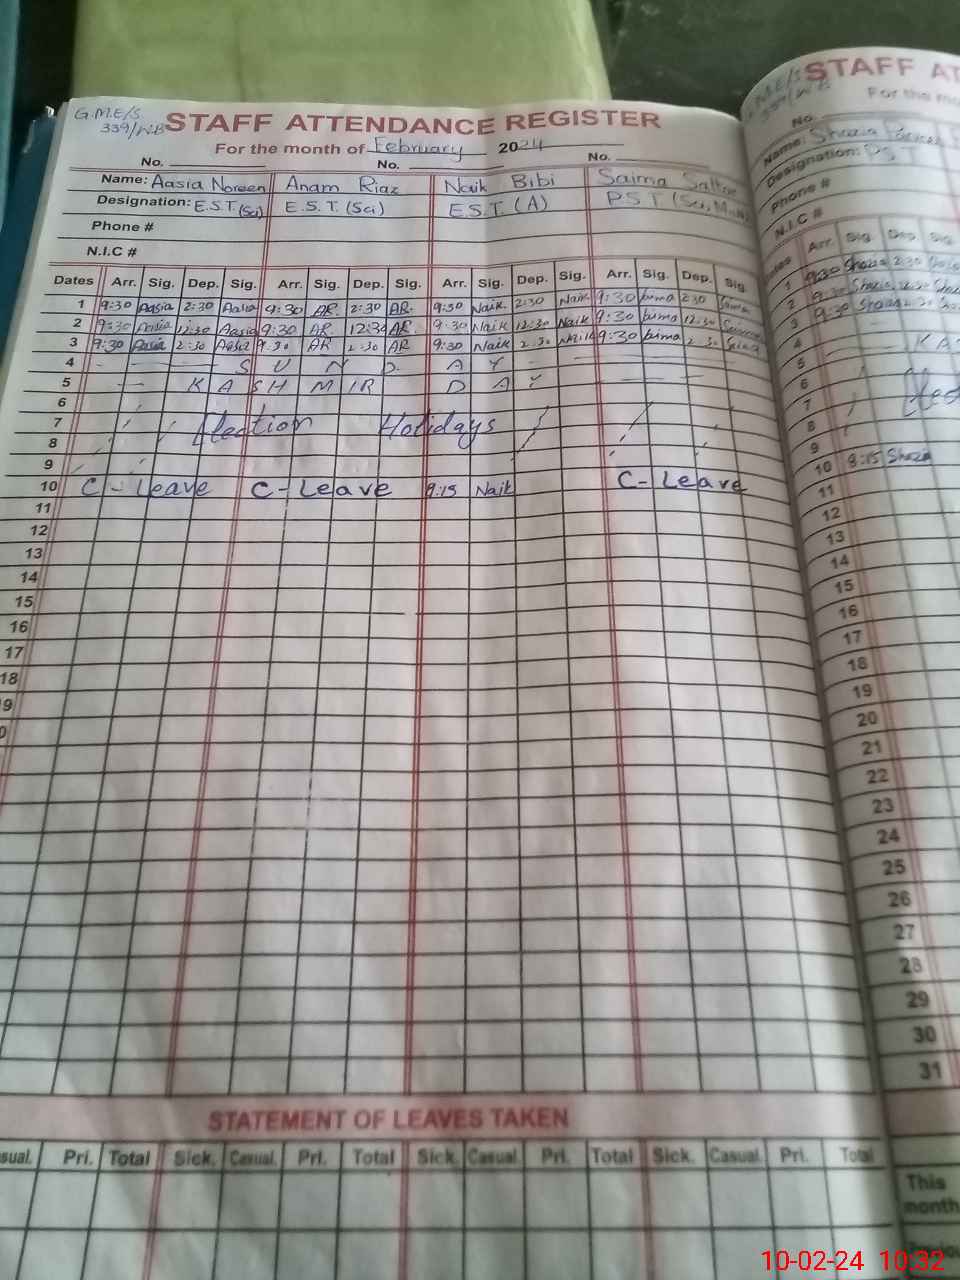 G.M.E/S
339/W.B
STAFF ATTENDANCE REGISTER
For the month of February 2024
No. No. No.
Name: Aasia Noreen Anam Riaz Naik Bibi Saima Sattar
Designation: E.S.T (Sci) E.S.T. (Sci) E.S.T. (A) P.S.T
Phone #
N.I.C #
Dates Arr. Sig. Dep. Sig. Arr. Sig. Dep. Sig. Arr. Sig. Dep. Sig. Arr. Sig. Dep. Sig.
1 9:30 Aasia 2:30 Aasia 9:30 AR. 2:30 AR. 9:30 Naik 2:30 Naik 9:30 2:30
2 9:30 Aasia 12:30 Aasia 9:30 AR 12:30 AR 9:30 Naik 12:30 Naik 9:30 12:30
3 9:30 Aasia 2:30 Aasia 9:30 AR 2:30 AR 9:30 Naik 2:30 Naik 9:30 2:30
4 S U N D A Y
5 K A S H M I R D A Y
6
7 Election Holidays
8
9
10 C - Leave C - Leave 9:15 Naik C - Leave
11
12
13
14
15
16
17
18
9
0
STATEMENT OF LEAVES TAKEN
sual. Pri. Total Sick. Casual. Pri. Total Sick. Casual. Pri. Total Sick. Casual. Pri. Total
STAFF AT
339/W.B
For the mo
No.
Name: Shazia
Designation: PST
Phone #
N.I.C #
Arr. Sig. Dep. Sig.
1 9:30 Shazia 2:30
2 9:30 Shazia 12:30
3 9:30 Shazia
4
5 KA
6
7
8
9
10 9:15 Shazia
11
12
13
14
15
16
17
18
19
20
21
22
23
24
25
26
27
28
29
30
31
This
month
10-02-24 10:32